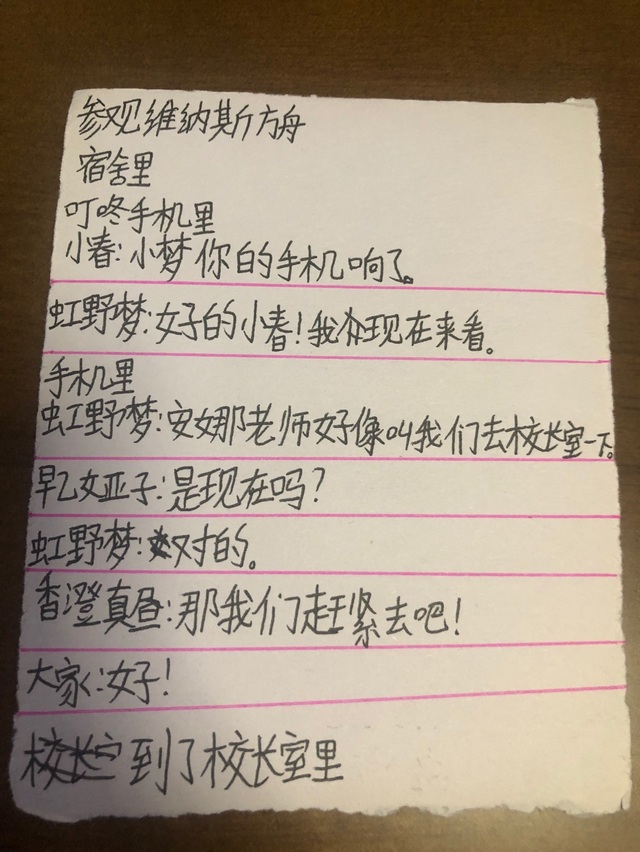 参观维纳斯方舟
宿舍里
叮咚手机里
小春:小梦你的手机响了。
虹野梦:好的小春!我现在来看。
手机里
虹野梦:安娜那老师好像叫我们去校长室一下。
早乙女亚子:是现在吗?
虹野梦:对的。
香澄真昼:那我们赶紧去吧!
大家:好!
到了校长室里